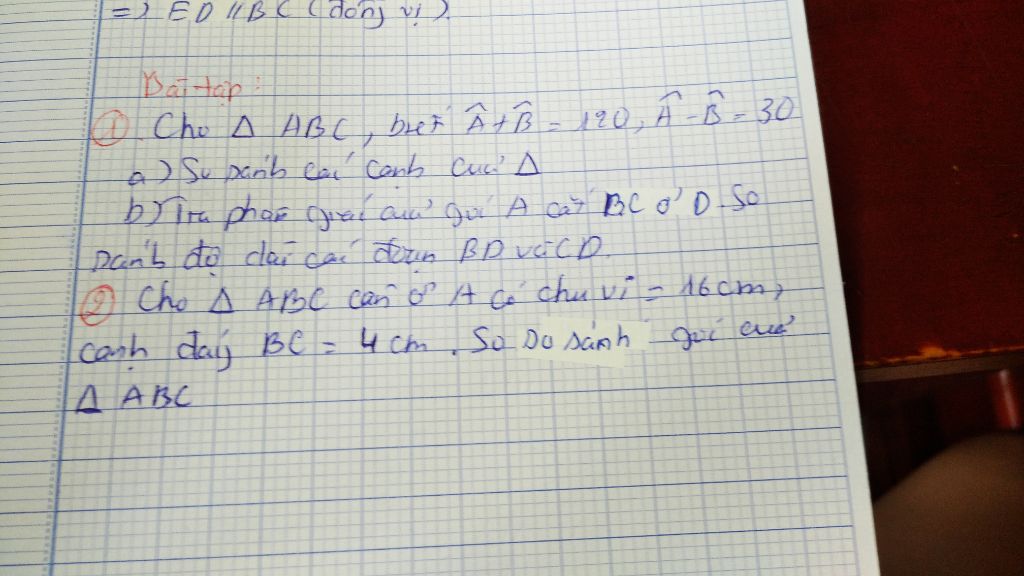 => ED // BC (đồng vị).
Bài tập:
① Cho Δ ABC, biết Â + B̂ = 120, Â - B̂ = 30
a) So sánh các cạnh của Δ
b) Tia phân giác của góc A cắt BC ở D. So
sánh độ dài các đoạn BD và CD.
② Cho Δ ABC cân ở A có chu vi = 16cm,
cạnh đáy BC = 4 cm. So So sánh góc của
Δ ABC